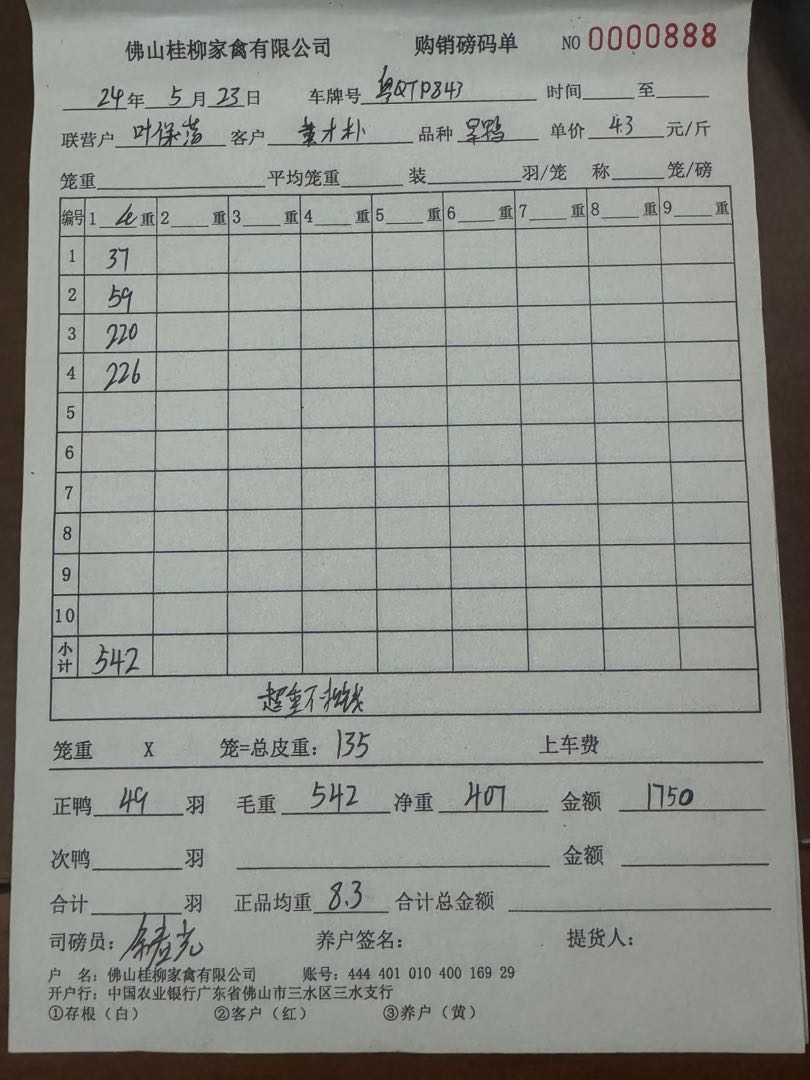 佛山桂柳家禽有限公司 购销磅码单 NO 0000888
24年 5月 23日 车牌号 粤QTP843 时间 至
联营户 叶保 客户 黄才朴 品种 鸭 单价 4.3 元/斤
笼重 平均笼重 装 羽/笼 称 笼/磅
编号 1 重 2 重 3 重 4 重 5 重 6 重 7 重 8 重 9 重
1 37
2 59
3 220
4 226
5
6
7
8
9
10
小计 542
超重不扣钱
笼重 X 笼=总皮重: 135 上车费
正鸭 49 羽 毛重 542 净重 407 金额 1750
次鸭 羽 金额
合计 羽 正品均重 8.3 合计总金额
司磅员: 养户签名: 提货人:
户 名: 佛山桂柳家禽有限公司 账号: 444 401 010 400 169 29
开户行: 中国农业银行广东省佛山市三水区三水支行
①存根(白) ②客户(红) ③养户(黄)